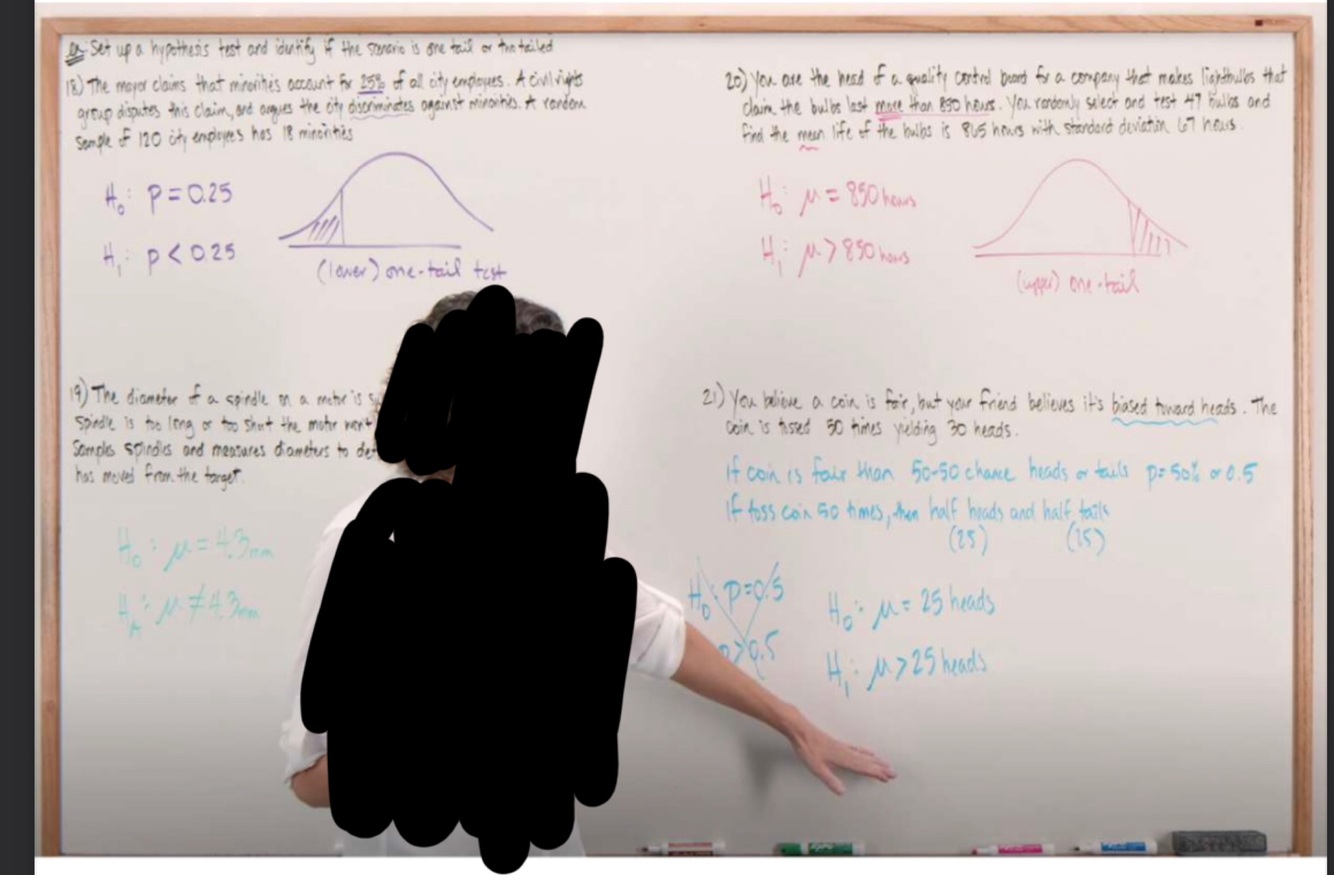 Ex: Set up a hypothesis test and identify if the scenario is one tail or two tailed
18) The mayor claims that minorities account for 25% of all city employees. A civil rights
group disputes this claim, and argues the city discriminates against minorities. A random
sample of 120 city employees has 18 minorities
H₀: p = 0.25
H₁: p < 0.25
(lower) one-tail test
19) The diameter of a spindle on a motor is
spindle is too long or too short the motor won't
samples spindles and measures diameters to
has moved from the target.
H₀: μ = 4.3mm
Hₐ: μ ≠ 4.3mm
20) You are the head of a quality control board for a company that makes lightbulbs that
claim the bulbs last more than 850 hours. You randomly select and test 47 bulbs and
find the mean life of the bulbs is 865 hours with standard deviation 67 hours.
H₀: μ = 850 hours
H₁: μ > 850 hours
(upper) one-tail
21) You believe a coin is fair, but your friend believes it's biased toward heads. The
coin is tossed 50 times yielding 30 heads.
If coin is fair than 50-50 chance heads or tails p=50% or 0.5
If toss coin 50 times, then half heads and half tails
(25) (25)
H₀: p=0.5
p>0.5
H₀: μ = 25 heads
H₁: μ > 25 heads